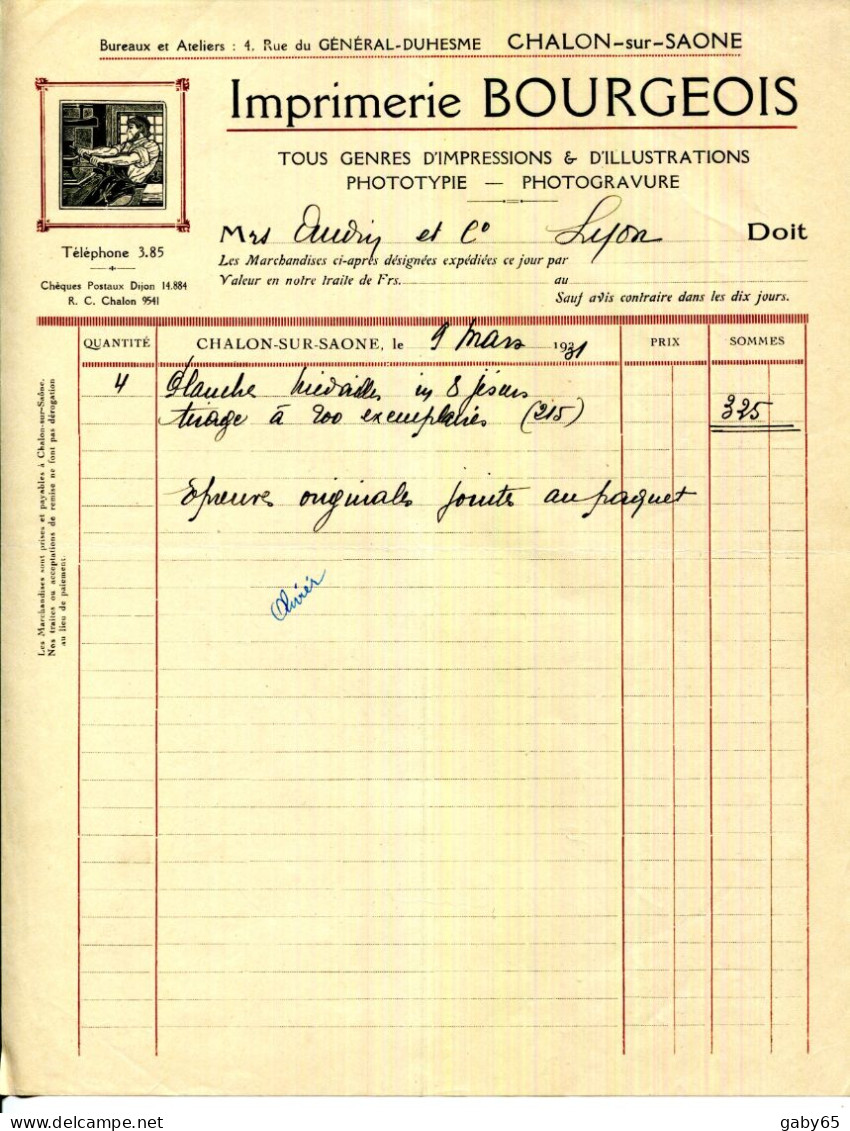 Bureaux et Ateliers : 4, Rue du GÉNÉRAL-DUHESME CHALON-sur-SAONE
Imprimerie BOURGEOIS
TOUS GENRES D'IMPRESSIONS & D'ILLUSTRATIONS
PHOTOTYPIE — PHOTOGRAVURE
Téléphone 3.85
Chèques Postaux Dijon 14.884
R. C. Chalon 9541
Mrs Audin et Co Lyon Doit
Les Marchandises ci-après désignées expédiées ce jour par
Valeur en notre traite de Frs. au
Sauf avis contraire dans les dix jours.
QUANTITÉ CHALON-SUR-SAONE, le 9 Mars 1931 PRIX SOMMES
4 Planche Médailles in 8 jésus
tirage à 200 exemplaires (215) 325
Epreuves originales jointes au paquet
Olivier
Les Marchandises sont prises et payables à Chalon-sur-Saône.
Nos traites ou acceptations de remise ne font pas dérogation
au lieu de paiement.
gaby65